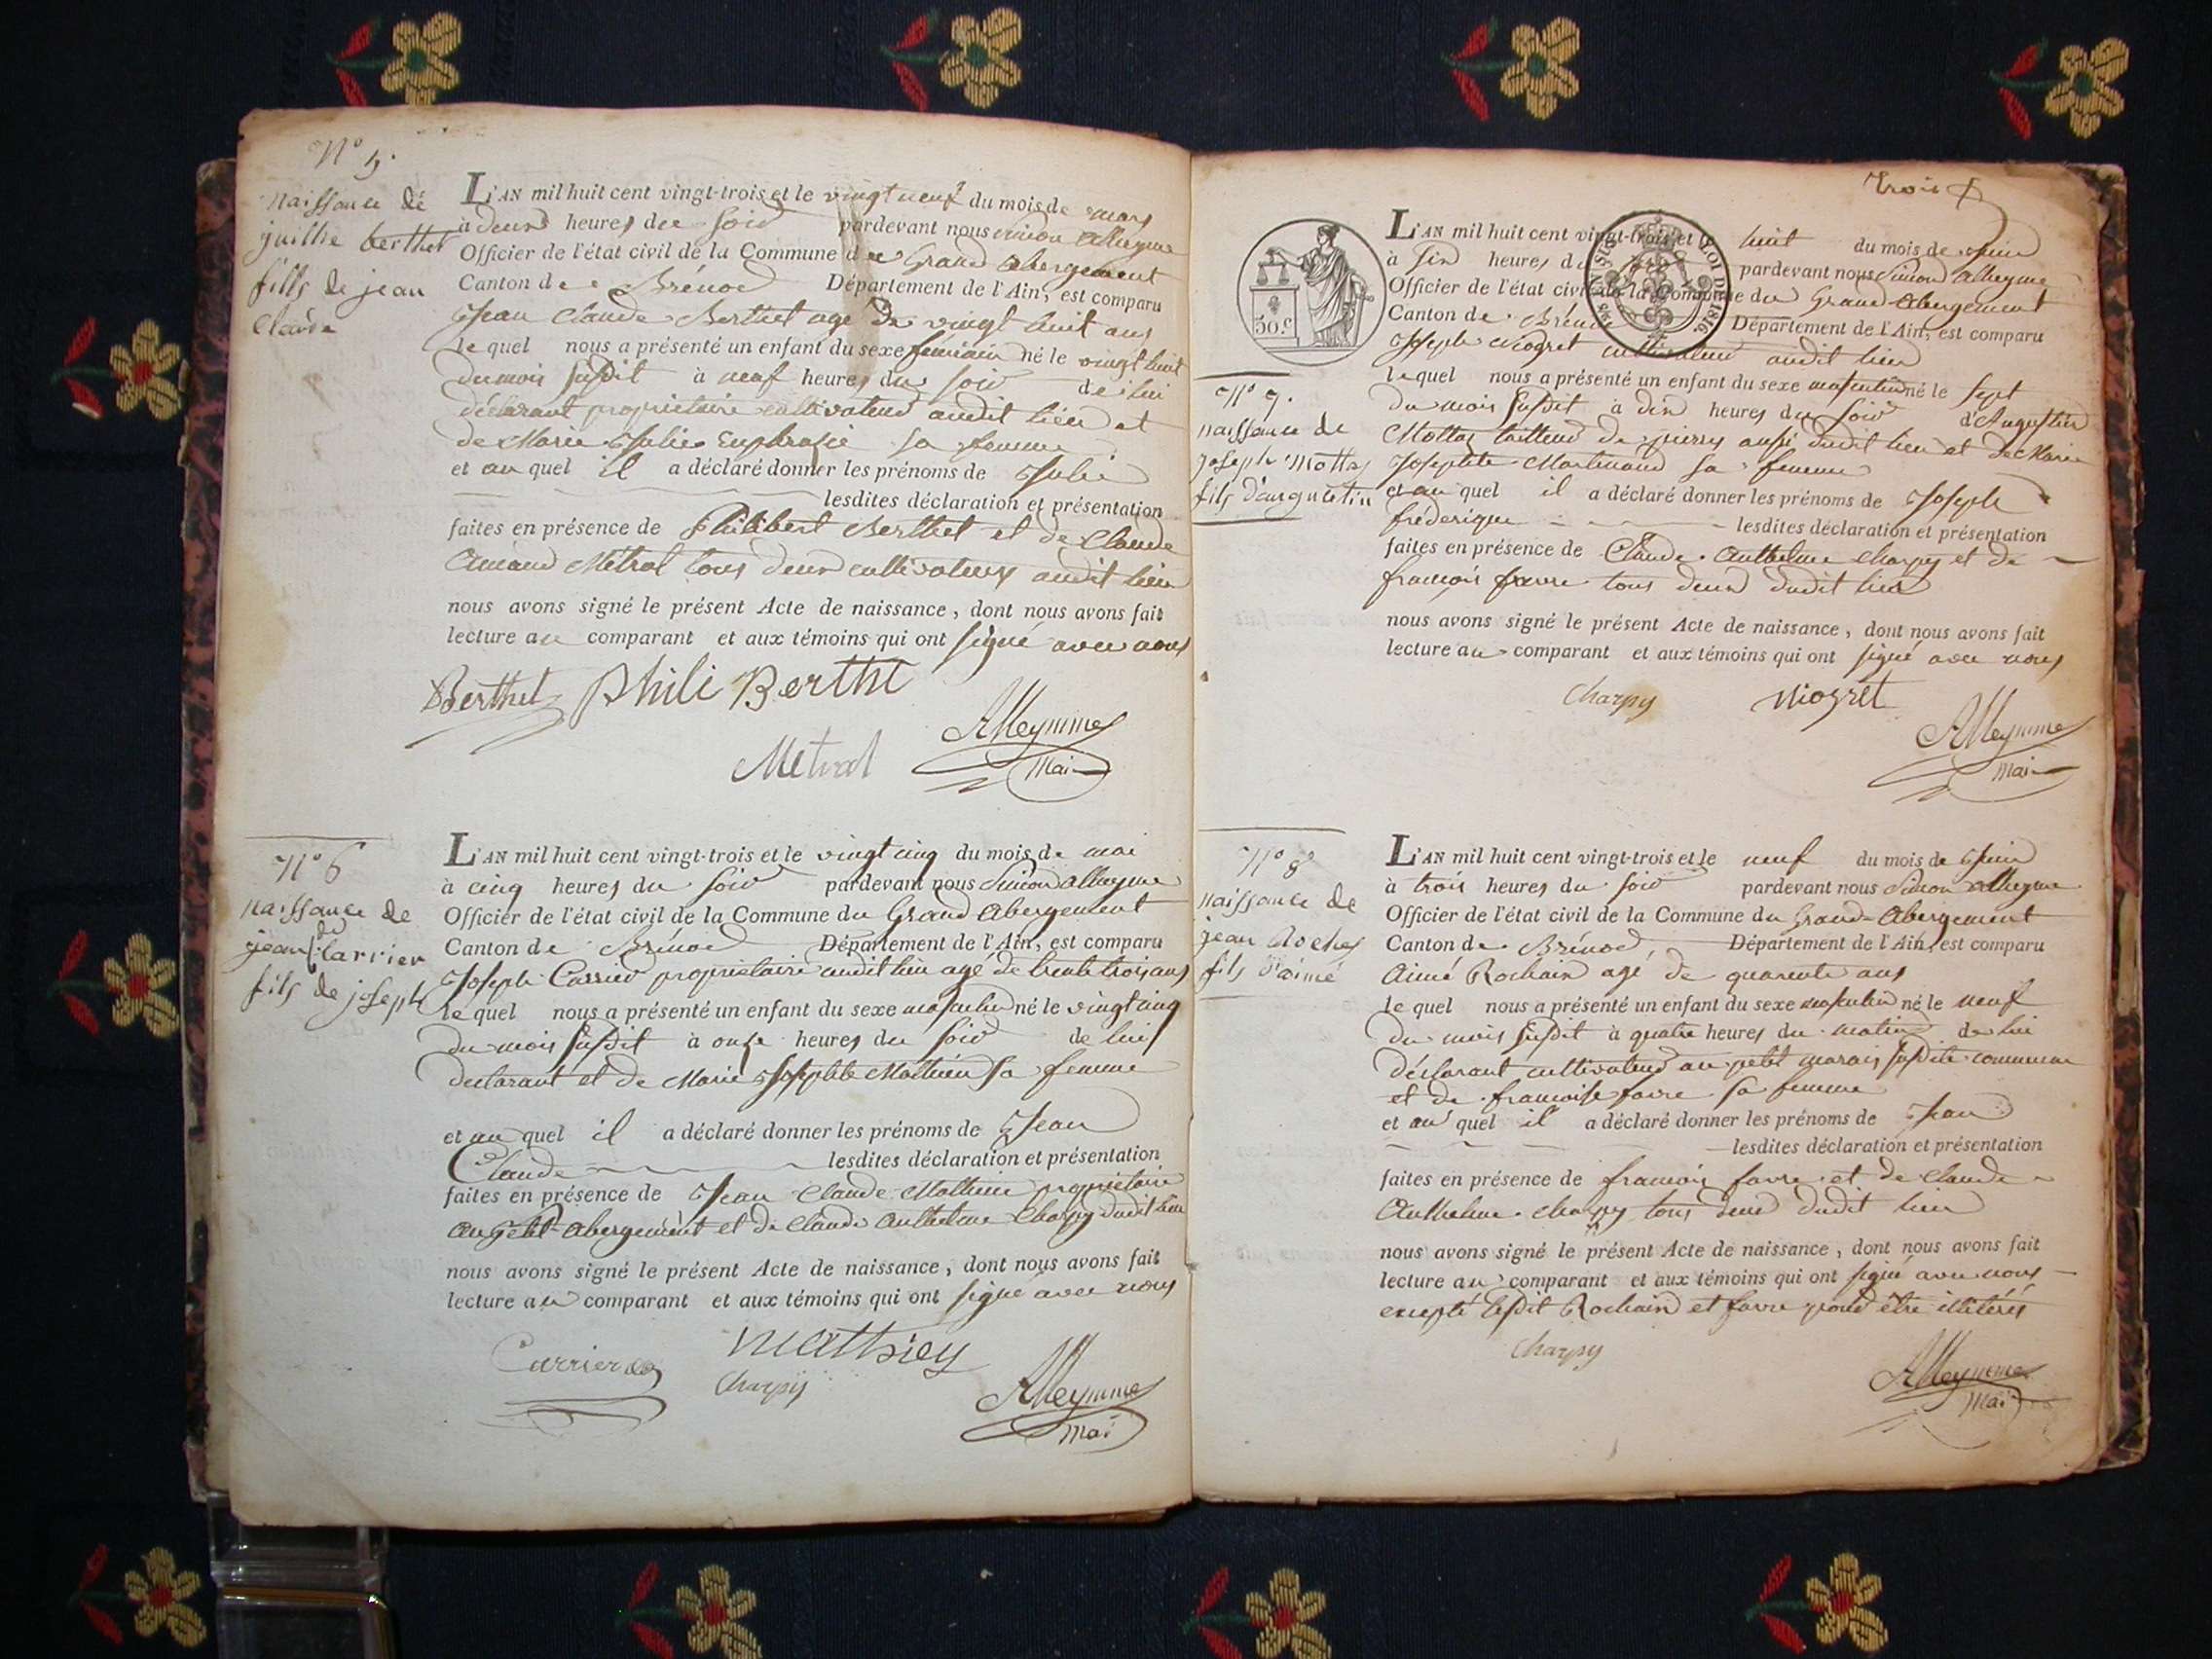 N° 5.
naissance de
juillie berthet
fills de jean
claude
L'AN mil huit cent vingt-trois et le vingt neuf du mois de mars
à deux heures du soir pardevant nous Simon Alleyme
Officier de l'état civil de la Commune du Grand abergement
Canton de Brénod Département de l'Ain, est comparu
Jean Claude Berthet agé de vingt huit ans
le quel nous a présenté un enfant du sexe féminin né le vingt huit
du mois susdit à neuf heures du soir de lui
déclarant propriétaire cultivateur audit lieu et
de Marie Julie Euphrasie sa femme
et au quel il a déclaré donner les prénoms de Julie
lesdites déclaration et présentation
faites en présence de Philibert Berthet et de Claude
Amand Métral tous deux cultivateurs audit lieu
nous avons signé le présent Acte de naissance, dont nous avons fait
lecture au comparant et aux témoins qui ont signé avec nous
Berthet Phili Berthet
Metral Alleymme
Mai
N° 6
naissance de
jean Cde Carrier
fils de joseph
L'AN mil huit cent vingt-trois et le vingt cinq du mois de mai
à cinq heures du soir pardevant nous Simon Alleyme
Officier de l'état civil de la Commune du Grand Abergement
Canton de Brénod Département de l'Ain, est comparu
Joseph Carrier propriétaire audit lieu agé de trente trois ans
le quel nous a présenté un enfant du sexe masculin né le vingt cinq
du mois susdit à onze heures du soir de lui
declarant et de Marie Josephte Mathieu sa femme
et au quel il a déclaré donner les prénoms de Jean
Claude lesdites déclaration et présentation
faites en présence de Jean Claude Mathieu propriétaire
au Petit-Abergement et de Claude Anthelme Charpy dudit lieu
nous avons signé le présent Acte de naissance, dont nous avons fait
lecture au comparant et aux témoins qui ont signé avec nous
Carrier Mathieu
Charpy Alleymme
Mai
trois
50 C.
LOI DE 1816.
N° 7.
naissance de
joseph Mottaz
fils d'augustin
L'AN mil huit cent vingt-trois et le huit du mois de Juin
à six heures du soir pardevant nous Simon Alleyme
Officier de l'état civil de la Commune du Grand Abergement
Canton de Brénod Département de l'Ain, est comparu
Joseph Niogret cultivateur audit lieu
le quel nous a présenté un enfant du sexe masculin né le sept
du mois susdit à dix heures du soir d'Augustin
Mottaz tailleur de pierres aussi dudit lieu et de Marie
Josephte Martinand sa femme
et au quel il a déclaré donner les prénoms de Joseph
fréderique lesdites déclaration et présentation
faites en présence de Claude Anthelme Charpy et de
françois favre tous deux dudit lieu
nous avons signé le présent Acte de naissance, dont nous avons fait
lecture au comparant et aux témoins qui ont signé avec nous
Charpy Niogret
Alleymme
Mai
N° 8
naissance de
jean Rochex
fils d'aimé
L'AN mil huit cent vingt-trois et le neuf du mois de Juin
à trois heures du soir pardevant nous Simon Alleyme
Officier de l'état civil de la Commune du Grand-Abergement
Canton de Brénod Département de l'Ain, est comparu
Aimé Rochaix agé de quarente ans
le quel nous a présenté un enfant du sexe masculin né le neuf
du mois susdit à quatre heures du matin de lui
déclarant cultivateur au petit marais susdite commune
et de françoise favre sa femme
et au quel il a déclaré donner les prénoms de Jean
lesdites déclaration et présentation
faites en présence de françois favre et de Claude
Anthelme Charpy tous deux dudit lieu
nous avons signé le présent Acte de naissance, dont nous avons fait
lecture au comparant et aux témoins qui ont signé avec nous
excepté lesdit Rochaix et favre pour être illitérés
Charpy
Alleymme
Mai